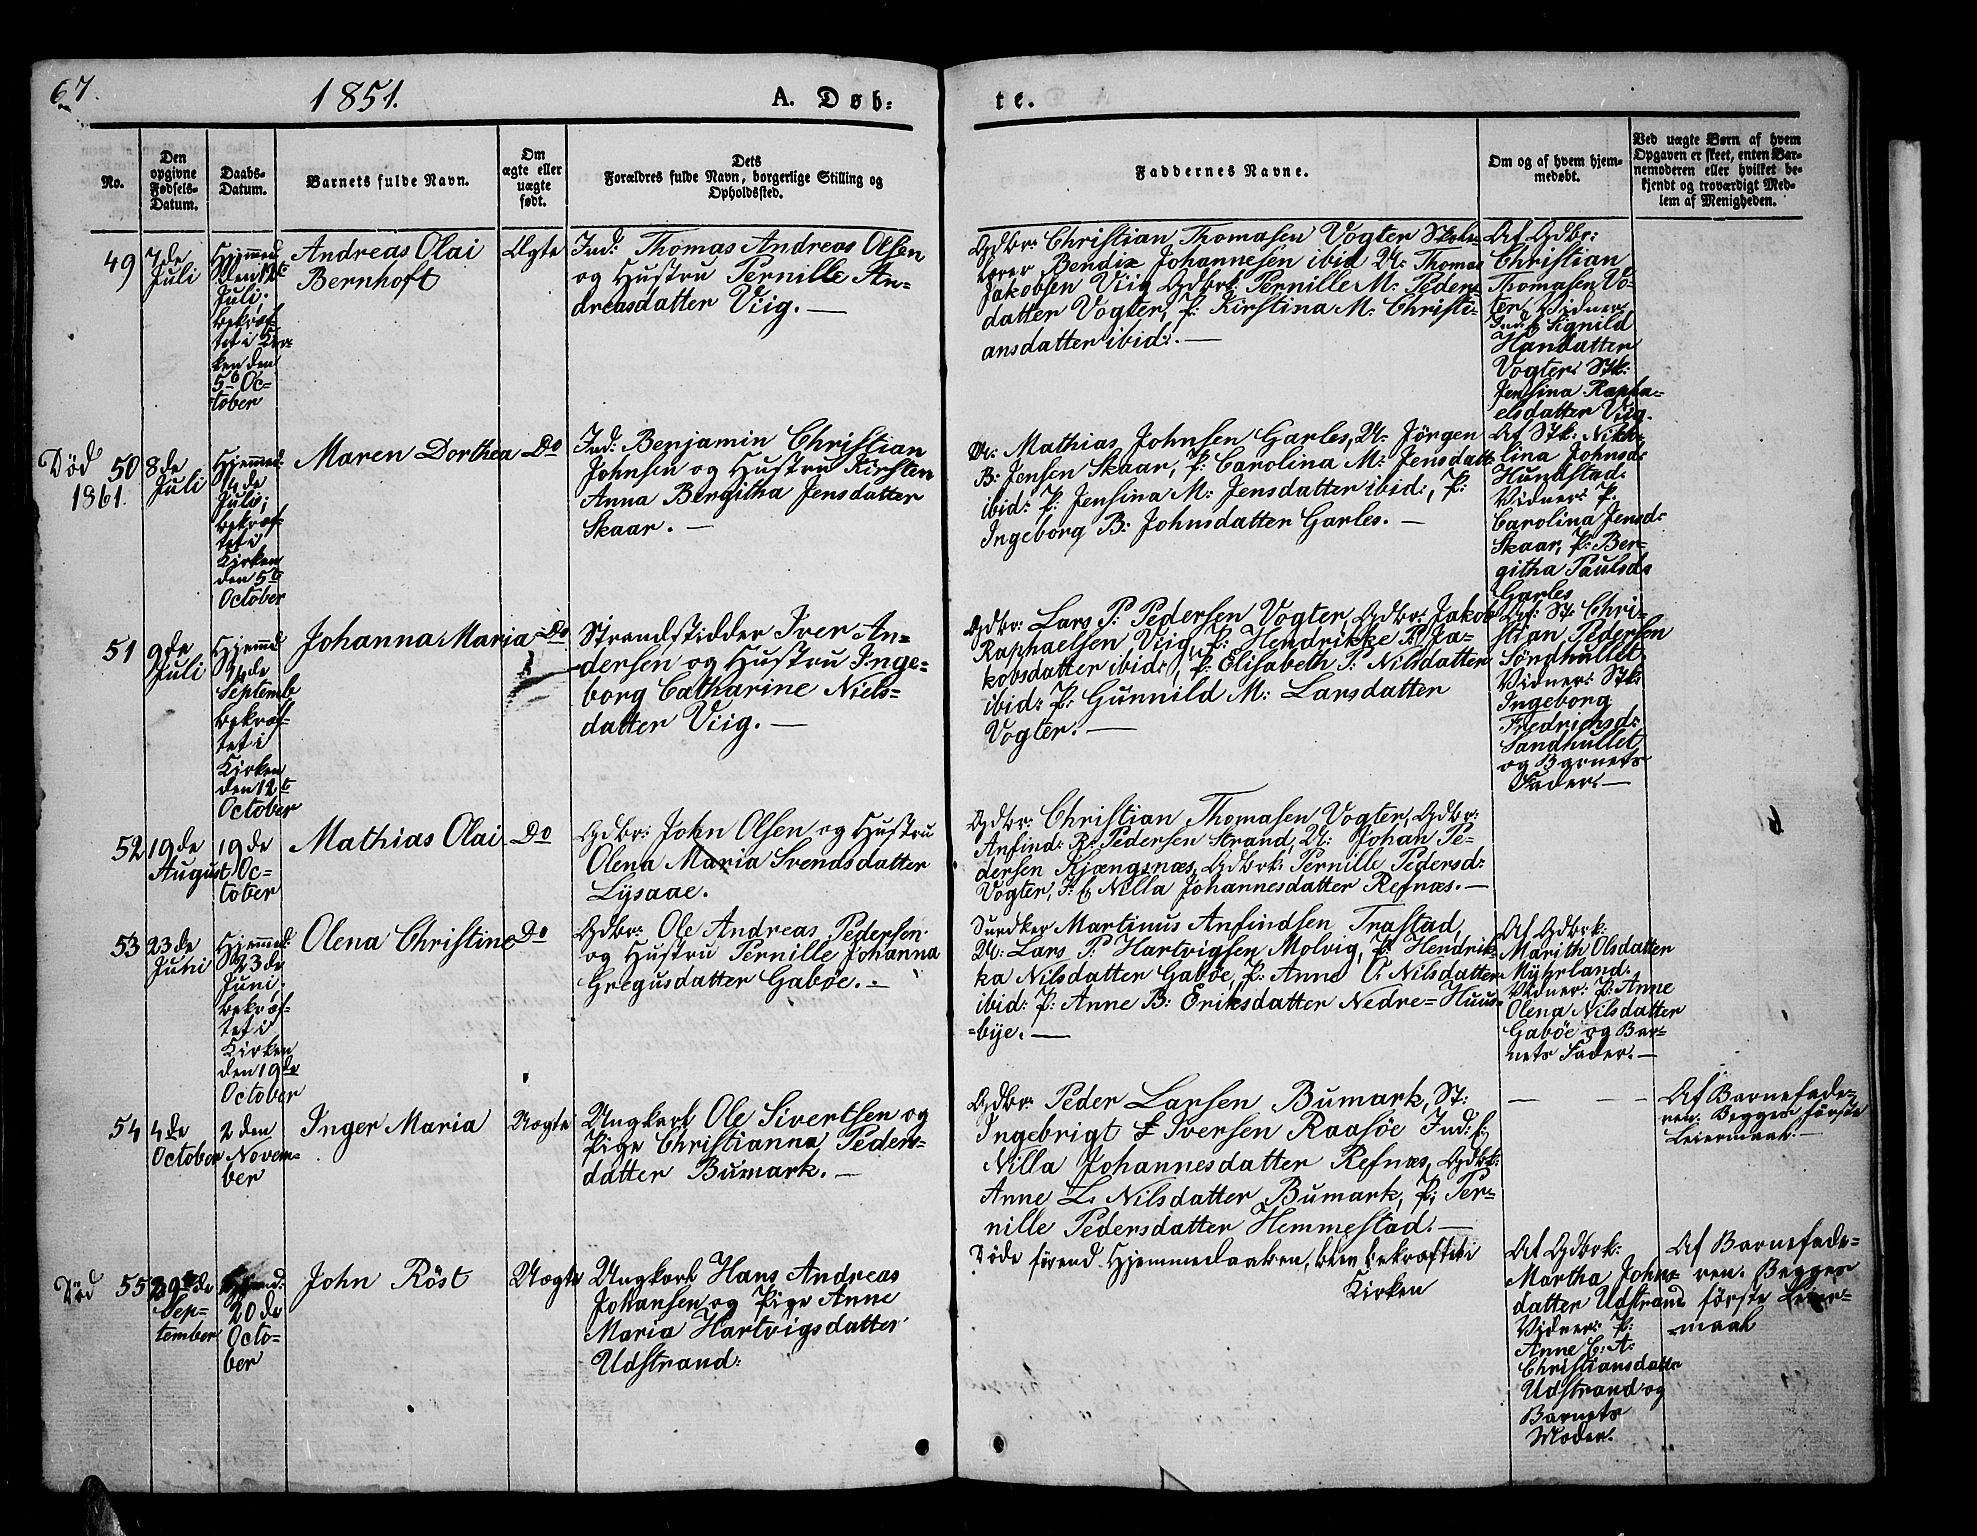 67.
1851.
A. Døb-
te.
No.
Den
opgivne
Fødsels-
Datum.
Daabs-
Datum.
Barnets fulde Navn.
Om
ægte eller
uægte
født.
Dets
Forældres fulde Navn, borgerlige Stilling og
Opholdssted.
Faddernes Navne.
Om og af hvem hjem-
medøbt.
Ved uægte Børn af hvem
Opgaven er skeet, enten Bar-
nemoderen eller hvilket be-
kjendt og troværdigt Med-
lem af Menigheden.
49
7de
Juli
Hjemmed:
den
Juli;
bekræf-
tet i Kir-
ken den
5te Oc-
tober
Andreas Olai
Bernhoft
Ægte
Ind: Thomas Andreas Olsen
og Hustru Pernille An-
dreasdatter Viig. —
Gdbr: Christian Thomasen Vogter Skole-
lærer Bendix Johannesen ibid U: Thomas
Jakobsen Viig Gdbrk: Pernille M: Peders
datter Vogter, P: Kirstina M: Christi-
ansdatter ibid:. —
Af Gdbr:
Christian
Thomasen Vo-
ter, Vidner
Ind: f Signild
Handatter
Vogter: Stk:
Jensina Rapha-
elsdatter Viig.
Død
1861.
50
8de
Juli
Hjemmed:
14de
Juli;
bekræf-
tet i
Kirken
den 5te
October
Maren Dorthea
Do
Ind: Benjamin Christian
Johnsen og Hustru Kirsten
Anna Bergitha Jensdatter
Skaar. —
U: Mathias Johnsen Garles, U: Jörgen
B: Jensen Skaar, P: Carolina M: Jensdatt
ibid: P: Jensina M: Jensdatter ibid:, P:
Ingeborg B: Johnsdatter Garles. —
Af Stk: Niko-
lina Johnsd:
Hundstad:
Vidner: P:
Carolina Jensd:
Skaar, P: Ber-
githa Paulsd:
Garles
51
9de
Juli
Hjemmd
14de
Septemb
bekræf-
tet i
Kirken
den 12te
October
Johanna Maria
Do
Strandsidder Iver An-
dersen og Hustru Inge-
borg Catharine Niels-
datter Viig. —
Gdbr: Lars P: Pedersen Vogter, Gdbr: Jakob
Raphaelsen Viig, P: Hendrikke P: Ja-
kobsdatter ibid:, P: Elisabeth P: Nilsdatter
ibid: P: Gunnild M: Larsdatter
Vogter. —
Af St: Chri-
stian Pedersen
Sandhullet
Vidner: Stk:
Ingeborg
Fredrichsd:
Sandhullet
og Barnets
Fader. —
52
19de
August
19de
Oc-
tober
Mathias Olai
Do
Gdbr: John Olsen og Hustru
Olena Maria Svendsdatter
Lysaae.
Gdbr: Christian Thomasen Vogter, Gdbr:
Anfind: R: Pedersen Strand, U: Johan Pe-
dersen Kjængsnæs, Gdbrk: Pernille Pedersd:
Vogter, I: f Nilla Johannesdatter Refnæs. —
53
23de
Juni
Hjemmed:
23de
Juni.
bekræf-
tet i
Kirken
den 19de
October
Olena Christine
Do
Gdbr: Ole Andreas Pedersen
og Hustru Pernille Johanna
Gregusdatter Gabøe. —
Snedker Martinus Anfindsen Trastad,
U: Lars P: Hartvigsen Molvig, P: Hendrik-
ka Nilsdatter Gabøe, P: Anne O: Nilsdatter
ibid: P: Anne B: Eriksdatter Nedre=Huus-
=bye. —
Af Gdbrk:
Marith Olsdatter
Myhrland.
Vidner: P: Anne
Olena Nilsdatter
Gabøe og Bar-
nets Fader. —
54
4de
October
2den
Novem-
ber
Inger Maria
Uægte
Ungkarl Ole Sivertsen og
Pige Christianna Peders-
datter Bumark. —
Gdbr: Peder Larsen Bumark, St:
Ingebrigt I Iversen Raasöe Ind: f:
Nilla Johannesdatter Refnæs, Gdbrk:
Anne L: Nilsdatter Bumark, P: Per-
nille Pedersdatter Hemmestad. —
— — —
Af Barnefade-
ren. Begges förste
Leiermaal. —
Död
55
de
Sep-
tember
20de
Octo-
ber
John Röst
Uægte
Ungkarl Hans Andreas
Johansen og Pige Anne
Maria Hartvigsdatter
Udstrand.
Döde förend Hjemmedaaben, blev bekræftet i
Kirken
Af Gdbrk:
Martha Johns-
datter Udstrand
Vidner: P:
Anne C: A:
Christiansdatter
Udstrand og
Barnets
Moder.
Af Barnefade-
ren. Begges
förste Leier-
maal